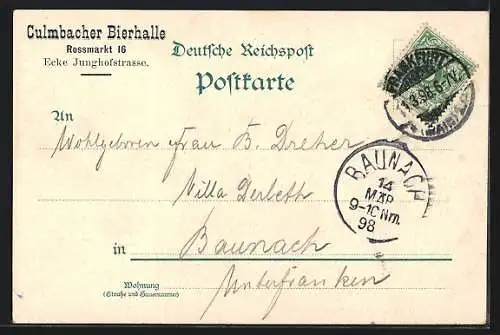 Culmbacher Bierhalle
Rossmarkt 16
Ecke Junghofstrasse.
Deutsche Reichspost
Postkarte
An
Wohlgeboren Frau B. Dreher
Villa Derleth
in Baunach
Unterfranken
Wohnung
(Straße und Hausnummer)
FRANKFURT
3.98. 6-7N.
(MAIN)
BAUNACH
14
MÄR
9-10Nm.
98